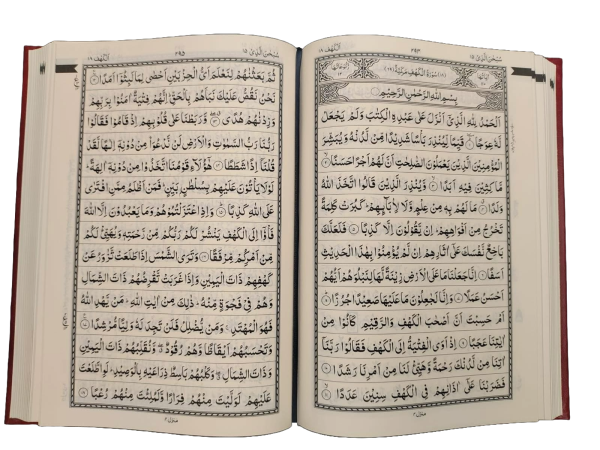 سُبْحٰنَ الَّذِيْٓ ١٥ ٢٩٤ اَلْكَهْف ١٨
(١٨) سُوْرَةُ الْكَهْفِ مَكِّيَّةٌ (٦٩)
بِسْمِ اللهِ الرَّحْمٰنِ الرَّحِيْمِ
اَلْحَمْدُ لِلّٰهِ الَّذِيْٓ اَنْزَلَ عَلٰى عَبْدِهِ الْكِتٰبَ وَلَمْ يَجْعَلْ
لَّهٗ عِوَجًا ۱ قَيِّمًا لِّيُنْذِرَ بَاْسًا شَدِيْدًا مِّنْ لَّدُنْهُ وَيُبَشِّرَ
الْمُؤْمِنِيْنَ الَّذِيْنَ يَعْمَلُوْنَ الصّٰلِحٰتِ اَنَّ لَهُمْ اَجْرًا حَسَنًا ۲
مَّاكِثِيْنَ فِيْهِ اَبَدًا ۳ وَّيُنْذِرَ الَّذِيْنَ قَالُوا اتَّخَذَ اللهُ
وَلَدًا ۴ مَا لَهُمْ بِهٖ مِنْ عِلْمٍ وَّلَا لِاٰبَآئِهِمْ ؕ كَبُرَتْ كَلِمَةً
تَخْرُجُ مِنْ اَفْوَاهِهِمْ ؕ اِنْ يَّقُوْلُوْنَ اِلَّا كَذِبًا ۵ فَلَعَلَّكَ
بَاخِعٌ نَّفْسَكَ عَلٰٓى اٰثَارِهِمْ اِنْ لَّمْ يُؤْمِنُوْا بِهٰذَا الْحَدِيْثِ
اَسَفًا ۶ اِنَّا جَعَلْنَا مَا عَلَى الْاَرْضِ زِيْنَةً لَّهَا لِنَبْلُوَهُمْ اَيُّهُمْ
اَحْسَنُ عَمَلًا ۷ وَاِنَّا لَجٰعِلُوْنَ مَا عَلَيْهَا صَعِيْدًا جُرُزًا ۸
اَمْ حَسِبْتَ اَنَّ اَصْحٰبَ الْكَهْفِ وَالرَّقِيْمِ كَانُوْا مِنْ
اٰيٰتِنَا عَجَبًا ۹ اِذْ اَوَى الْفِتْيَةُ اِلَى الْكَهْفِ فَقَالُوْا رَبَّنَآ
اٰتِنَا مِنْ لَّدُنْكَ رَحْمَةً وَّهَيِّئْ لَنَا مِنْ اَمْرِنَا رَشَدًا ۱۰
فَضَرَبْنَا عَلٰٓى اٰذَانِهِمْ فِي الْكَهْفِ سِنِيْنَ عَدَدًا ۱۱
سُبْحٰنَ الَّذِيْٓ ١٥ ٢٩٥ اَلْكَهْف ١٨
ثُمَّ بَعَثْنٰهُمْ لِنَعْلَمَ اَيُّ الْحِزْبَيْنِ اَحْصٰى لِمَا لَبِثُوْٓا اَمَدًا ۱۲
نَحْنُ نَقُصُّ عَلَيْكَ نَبَاَهُمْ بِالْحَقِّ ؕ اِنَّهُمْ فِتْيَةٌ اٰمَنُوْا بِرَبِّهِمْ
وَزِدْنٰهُمْ هُدًى ۱۳ وَّرَبَطْنَا عَلٰى قُلُوْبِهِمْ اِذْ قَامُوْا فَقَالُوْا
رَبُّنَا رَبُّ السَّمٰوٰتِ وَالْاَرْضِ لَنْ نَّدْعُوَا۟ مِنْ دُوْنِهٖٓ اِلٰهًا لَّقَدْ
قُلْنَآ اِذًا شَطَطًا ۱۴ هٰٓؤُلَآءِ قَوْمُنَا اتَّخَذُوْا مِنْ دُوْنِهٖٓ اٰلِهَةً ؕ
لَوْلَا يَاْتُوْنَ عَلَيْهِمْ بِسُلْطٰنٍۭ بَيِّنٍ ؕ فَمَنْ اَظْلَمُ مِمَّنِ افْتَرٰى
عَلَى اللهِ كَذِبًا ۱۵ وَاِذِ اعْتَزَلْتُمُوْهُمْ وَمَا يَعْبُدُوْنَ اِلَّا اللهَ
فَاْوٗٓا اِلَى الْكَهْفِ يَنْشُرْ لَكُمْ رَبُّكُمْ مِّنْ رَّحْمَتِهٖ وَيُهَيِّئْ لَكُمْ
مِّنْ اَمْرِكُمْ مِّرْفَقًا ۱۶ وَتَرَى الشَّمْسَ اِذَا طَلَعَتْ تَّزٰوَرُ عَنْ
كَهْفِهِمْ ذَاتَ الْيَمِيْنِ وَاِذَا غَرَبَتْ تَّقْرِضُهُمْ ذَاتَ الشِّمَالِ
وَهُمْ فِيْ فَجْوَةٍ مِّنْهُ ؕ ذٰلِكَ مِنْ اٰيٰتِ اللهِ ؕ مَنْ يَّهْدِ اللهُ
فَهُوَ الْمُهْتَدِ ۚ وَمَنْ يُّضْلِلْ فَلَنْ تَجِدَ لَهٗ وَلِيًّا مُّرْشِدًا ۱۷
وَتَحْسَبُهُمْ اَيْقَاظًا وَّهُمْ رُقُوْدٌ ۖ وَّنُقَلِّبُهُمْ ذَاتَ الْيَمِيْنِ
وَذَاتَ الشِّمَالِ ۖ وَكَلْبُهُمْ بَاسِطٌ ذِرَاعَيْهِ بِالْوَصِيْدِ ؕ لَوِ اطَّلَعْتَ
عَلَيْهِمْ لَوَلَّيْتَ مِنْهُمْ فِرَارًا وَّلَمُلِئْتَ مِنْهُمْ رُعْبًا ۱۸